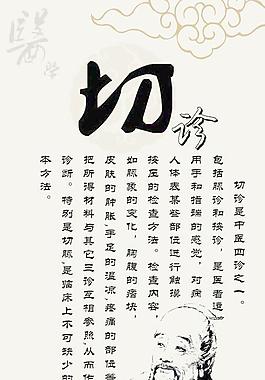 醫
学
切
诊
切诊是中医四诊之一。
包括脉诊和按诊，是医者运
用手和指端的感觉，对病
人体表某些部位进行触摸
按压的检查方法。检查内容,
如脉象的变化，胸腹的痞块，
皮肤的肿胀,手足的温凉,疼痛的部位等
把所得材料与其它三诊互相参照,从而作
诊断。特别是切脉,是临床上不可缺少的
本方法。